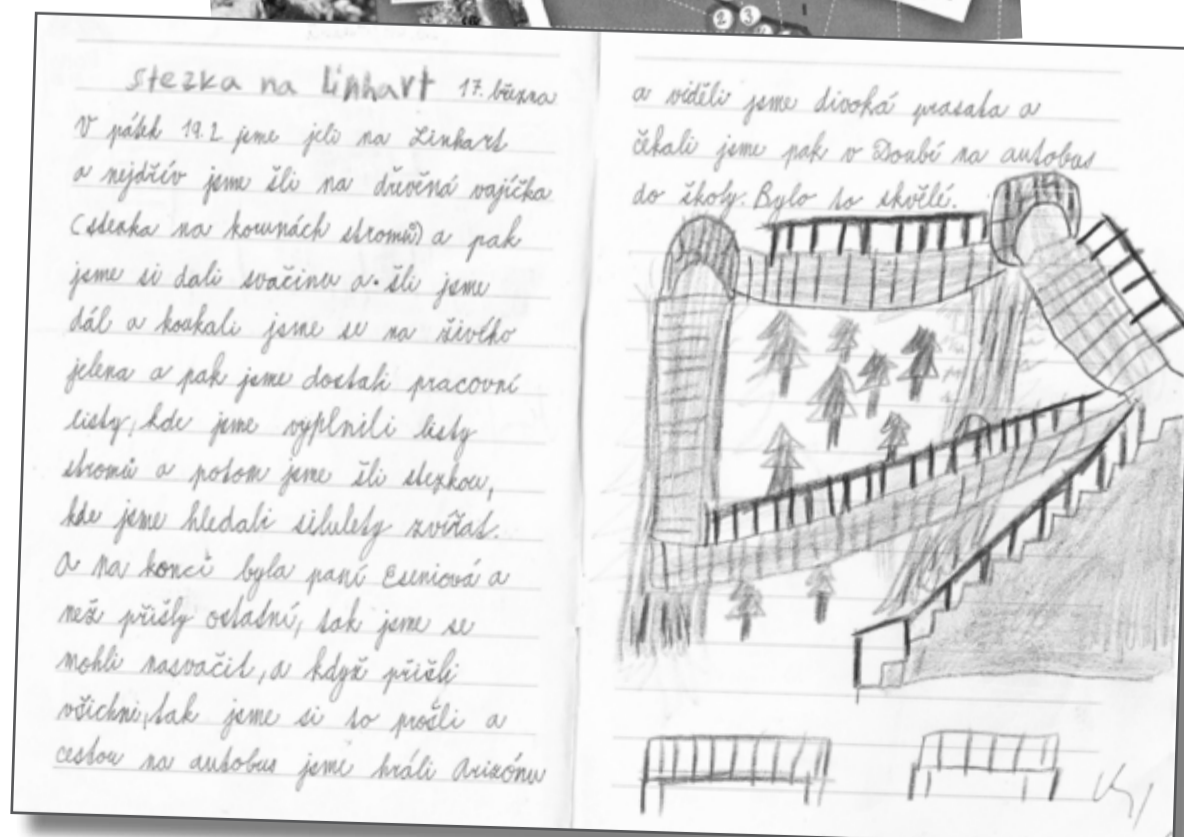 2 3
stezka na Linhart 17. března
V pátek 19.2 jsme jeli na Linhart
a nejdřív jsme šli na dřevěná vajíčka
(stezka na korunách stromů) a pak
jsme si dali svačinu a šli jsme
dál a koukali jsme se na živého
jelena a pak jsme dostali pracovní
listy, kde jsme vyplnili listy
stromů a potom jsme šli stezkou,
kde jsme hledali silulety zvířat.
A na konci byla paní Eseniová a
než přišly ostatní, tak jsme se
mohli nasvačit, a když přišli
všichni, tak jsme si to prošli a
cestou na autobus jsme hráli Arizónu
a viděli jsme divoká prasata a
čekali jsme pak v Doubí na autobus
do školy. Bylo to skvělé.